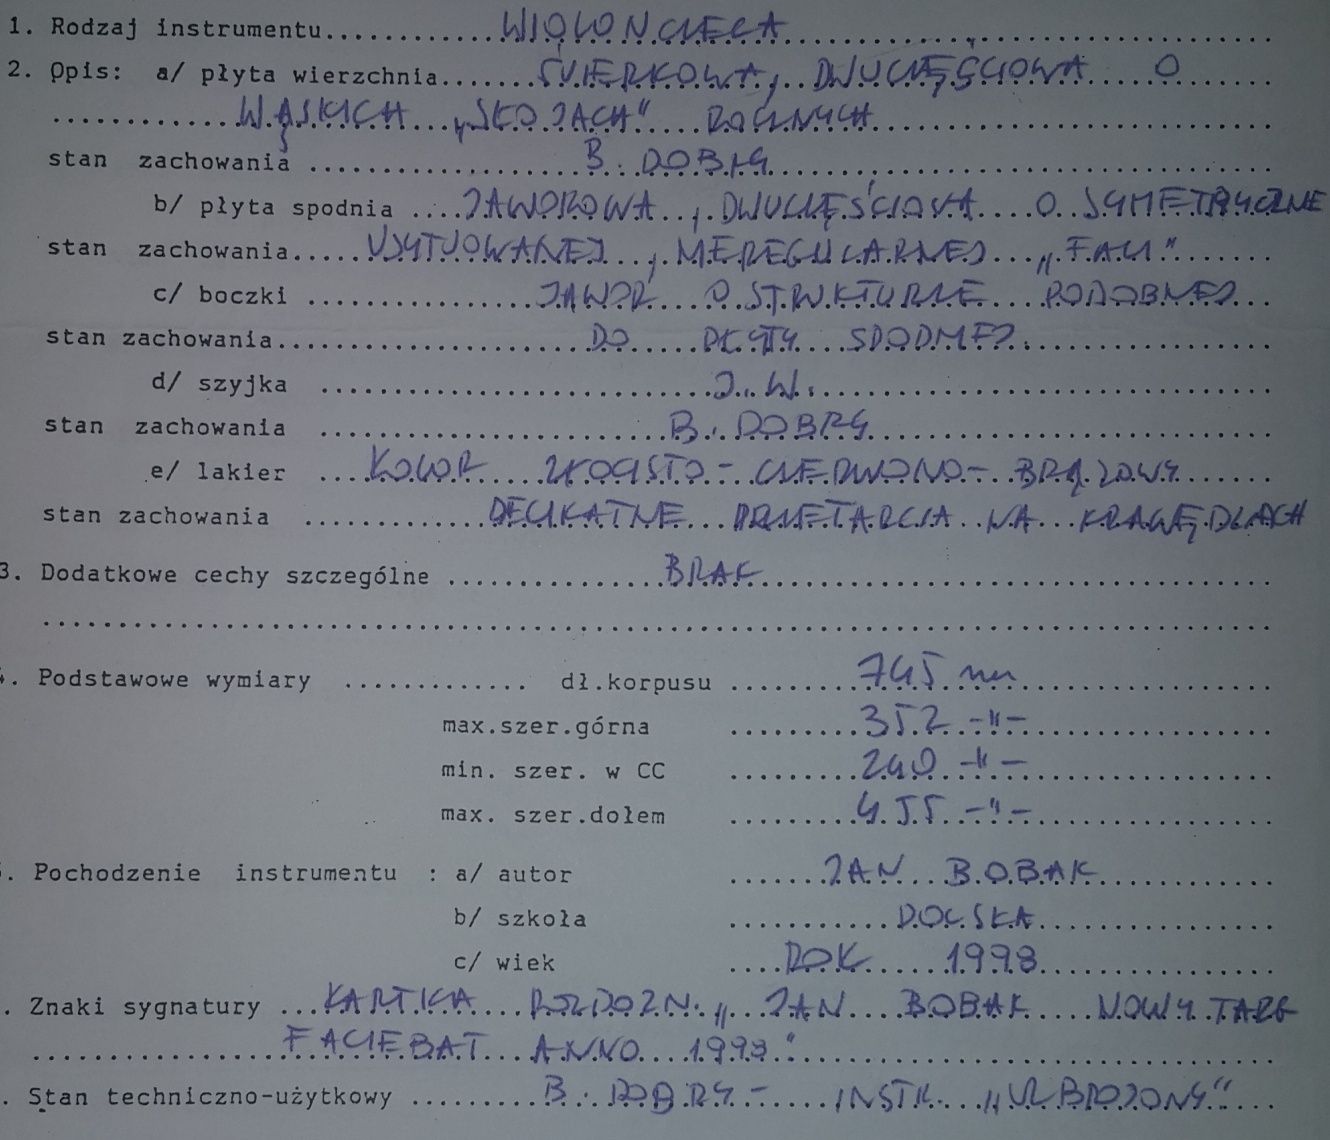 1. Rodzaj instrumentu WIOLONCZELA
2. Opis: a/ płyta wierzchnia ŚWIERKOWA, DWUCZĘŚCIOWA O
WĄSKICH „SŁOJACH" ROCZNYCH
stan zachowania B. DOBRY
b/ płyta spodnia JAWOROWA, DWUCZĘŚCIOWA O SYMETRYCZNIE
stan zachowania USYTUOWANEJ, NIEREGULARNEJ „FALI"
c/ boczki JAWOR O STRUKTURZE PODOBNEJ
stan zachowania DO PŁYTY SPODNIEJ.
d/ szyjka J.W.
stan zachowania B. DOBRY
e/ lakier KOLOR ZŁOCISTO-CZERWONO-BRĄZOWY
stan zachowania DELIKATNE PRZETARCIA NA KRAWĘDZIACH
3. Dodatkowe cechy szczególne BRAK
. Podstawowe wymiary dł.korpusu 745 mm
max.szer.górna 352 -"-
min. szer. w CC 240 -"-
max. szer.dołem 455 -"-
. Pochodzenie instrumentu : a/ autor JAN BOBAK
b/ szkoła POLSKA
c/ wiek ROK 1998
. Znaki sygnatury KARTKA ROZPOZN. „JAN BOBAK NOWY TARG
FACIEBAT ANNO 1998"
. Stan techniczno-użytkowy B. DOBRY - INSTR. „UZBROJONY"